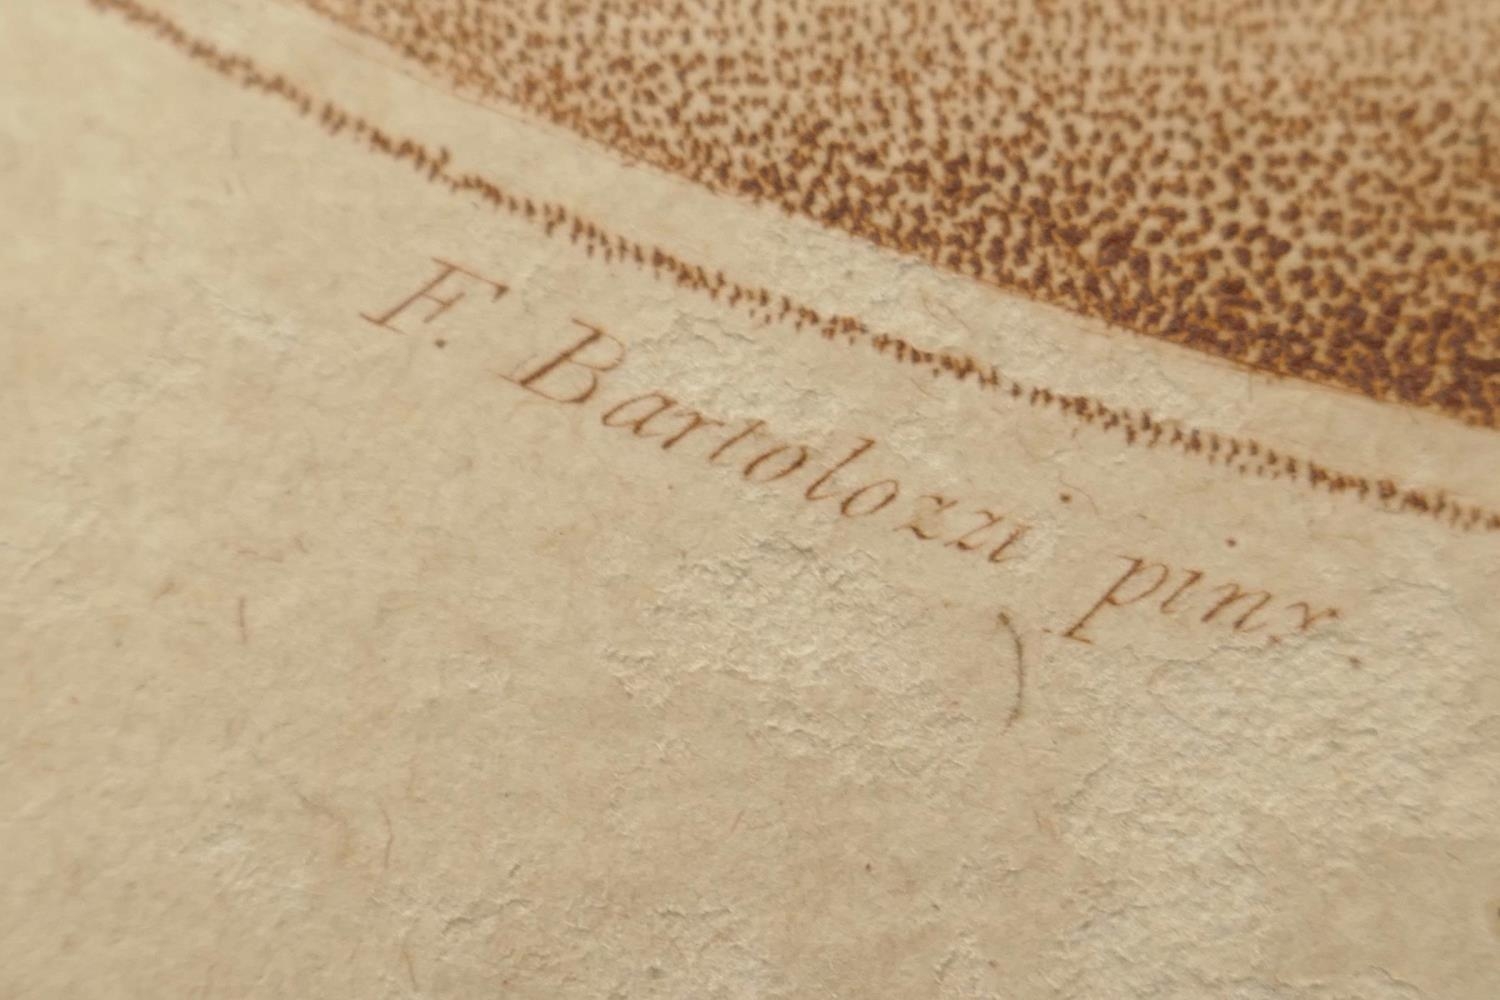 F. Bartolozzi pinx